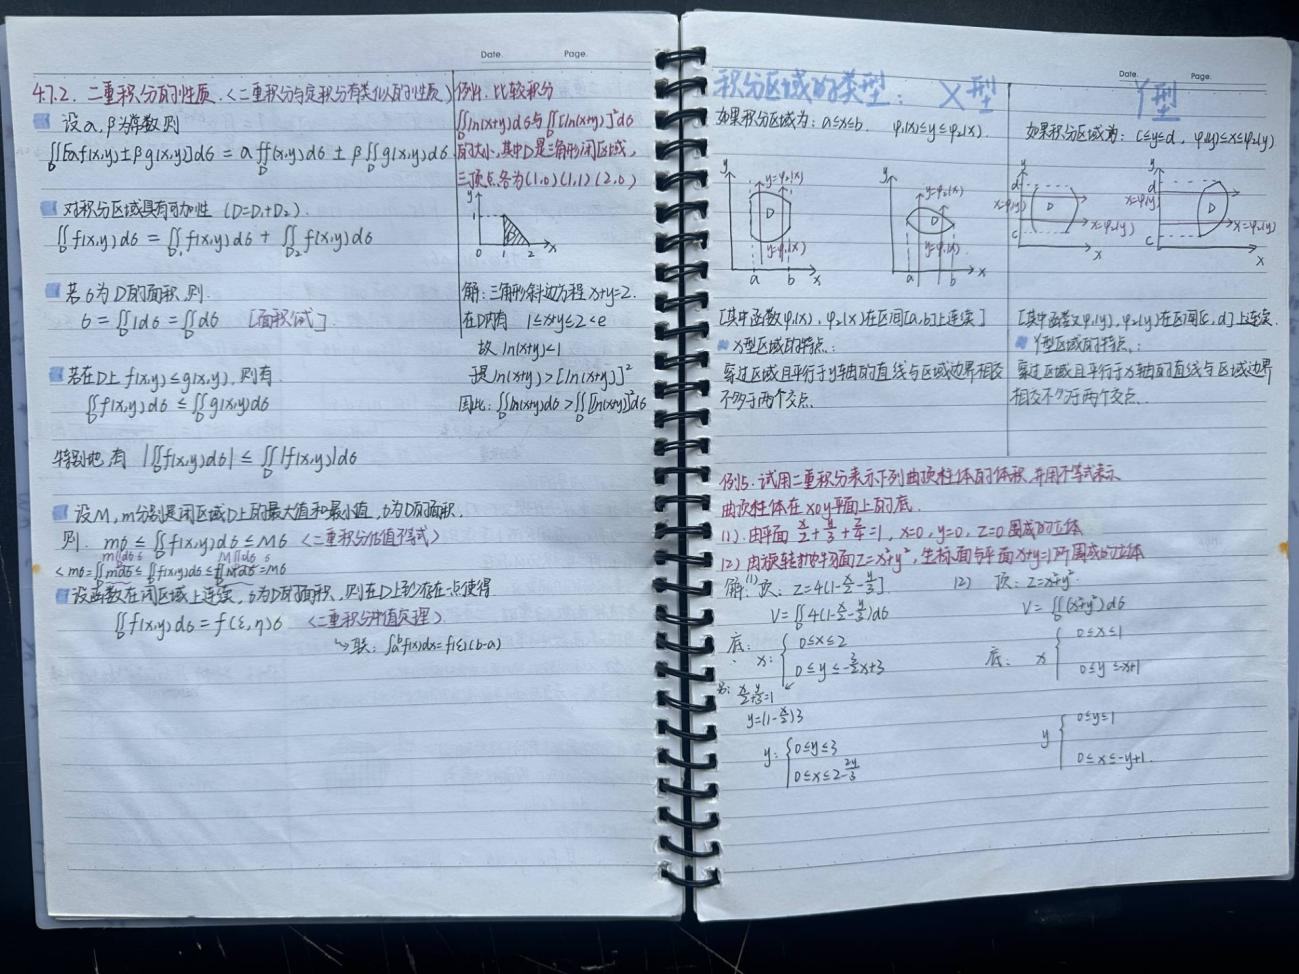 Date. Page.
4.7.2. 二重积分的性质.<二重积分与定积分有类似的性质>
设α, β为常数,则
∬[αf(x,y)±βg(x,y)]dσ = α∬f(x,y)dσ ± β∬g(x,y)dσ
D D D
对积分区域具有可加性 (D=D₁+D₂).
∬f(x,y)dσ = ∬f(x,y)dσ + ∬f(x,y)dσ
D D₁ D₂
若σ为D的面积,则.
σ = ∬1dσ = ∬dσ [面积公式].
D D
若在D上 f(x,y)≤g(x,y), 则有
∬f(x,y)dσ ≤ ∬g(x,y)dσ
D D
特别地,有 |∬f(x,y)dσ| ≤ ∬|f(x,y)|dσ
D D
设M, m分别是闭区域D上的最大值和最小值, σ为D的面积.
则. mσ ≤ ∬f(x,y)dσ ≤ Mσ <二重积分估值不等式>
D
m∬dσ σ M∬dσ σ
<mσ=∬mdσ ≤ ∬f(x,y)dσ ≤ ∬Mdσ=Mσ
设函数在闭区域上连续, σ为D的面积, 则在D上至少存在一点使得
∬f(x,y)dσ = f(ξ,η)σ <二重积分中值定理>
D
↳联: ∫ₐᵇf(x)dx=f(ξ)(b-a)
例4. 比较积分
∬ln(x+y)dσ与∬[ln(x+y)]²dσ
D D
的大小,其中D是三角形闭区域,
三顶点各为(1,0)(1,1)(2,0)
y
1 D
0 1 2 x
解:三角形斜边方程 x+y=2.
在D内有 1≤x+y≤2<e
故 ln(x+y)<1
于是ln(x+y)>[ln(x+y)]²
因此:∬ln(x+y)dσ>∬[ln(x+y)]²dσ
D D
Date. Page.
积分区域的类型: X型
如果积分区域为: a≤x≤b. φ₁(x)≤y≤φ₂(x).
y y=φ₂(x) D y=φ₁(x) a b x
y y=φ₂(x) D y=φ₁(x) a b x
[其中函数φ₁(x), φ₂(x)在区间[a,b]上连续]
X型区域的特点:
穿过区域且平行于y轴的直线与区域边界相交
不多于两个交点.
Y型
如果积分区域为: c≤y≤d, φ₁(y)≤x≤φ₂(y)
y d x=φ₁(y) D x=φ₂(y) c x
y d x=φ₁(y) D x=φ₂(y) c x
[其中函数φ₁(y), φ₂(y)在区间[c,d]上连续.
Y型区域的特点:
穿过区域且平行于x轴的直线与区域边界
相交不多于两个交点.
例5. 试用二重积分表示下列曲顶柱体的体积,并用不等式表示
曲顶柱体在xoy平面上的底.
(1). 由平面 x/2+y/3+z/4=1, x=0, y=0, z=0围成的立体
(2) 由旋转抛物面z=x²+y², 坐标面与平面x+y=1所围成的立体
解:(1)顶: z=4(1-x/2-y/3]
V=∬4(1-x/2-y/3)dσ
D
底: x: { 0≤x≤2
0≤y≤-3/2x+3
x/2+y/3=1
y=(1-x/2)3
y: { 0≤y≤3
0≤x≤2-2y/3
(2) 顶: z=x²+y².
V=∬(x²+y²)dσ
D
底: x { 0≤x≤1
0≤y≤-x+1
y { 0≤y≤1
0≤x≤-y+1.